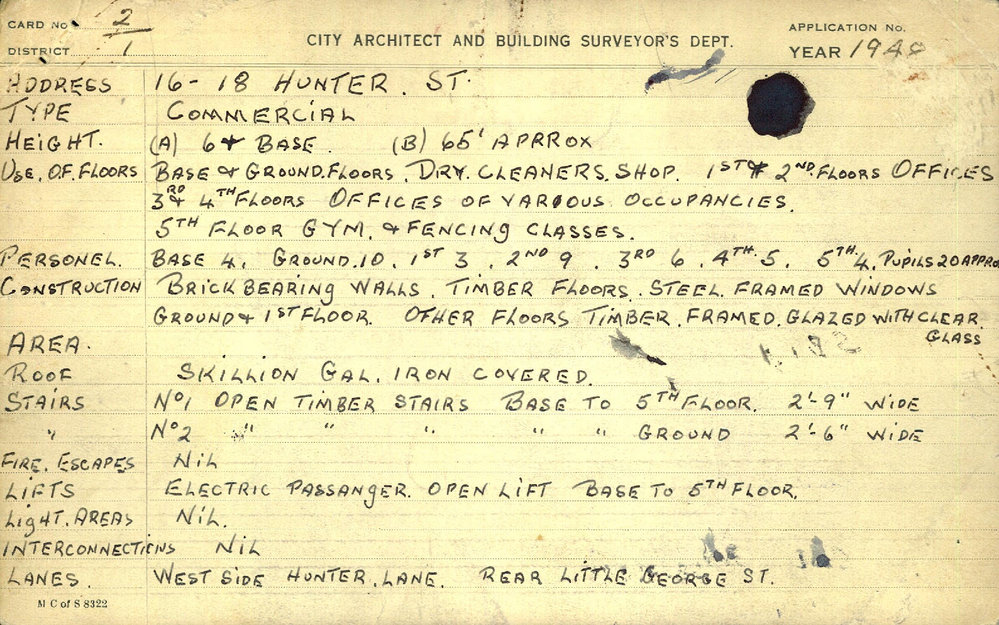 CARD No 2
DISTRICT 1
CITY ARCHITECT AND BUILDING SURVEYOR'S DEPT.
APPLICATION No.
YEAR 1948
ADDRESS 16-18 HUNTER. ST.
TYPE COMMERCIAL
HEIGHT. (A) 6 & BASE. (B) 65' APRROX
USE. OF. FLOORS BASE & GROUND. FLOORS. DRY. CLEANERS. SHOP. 1ST & 2ND FLOORS OFFICES
3RD & 4TH FLOORS OFFICES OF VARIOUS OCCUPANCIES.
5TH FLOOR GYM. & FENCING CLASSES.
PERSONEL. BASE 4. GROUND. 10. 1ST 3. 2ND 9. 3RD 6. 4TH 5. 5TH 4. PUPILS 20 APPROX
CONSTRUCTION BRICK BEARING WALLS. TIMBER FLOORS. STEEL. FRAMED WINDOWS
GROUND & 1ST FLOOR. OTHER FLOORS TIMBER. FRAMED. GLAZED WITH CLEAR.
GLASS
AREA.
ROOF SKILLION GAL. IRON COVERED.
STAIRS No1 OPEN TIMBER STAIRS BASE TO 5TH FLOOR. 2'-9" WIDE
" No2 " " " " " GROUND 2'-6" WIDE
FIRE. ESCAPES NIL
LIFTS ELECTRIC PASSANGER. OPEN LIFT BASE TO 5TH FLOOR.
LIGHT. AREAS NIL.
INTERCONNECTIONS NIL
LANES. WEST SIDE HUNTER. LANE. REAR LITTLE GEORGE ST.
M C of S 8322